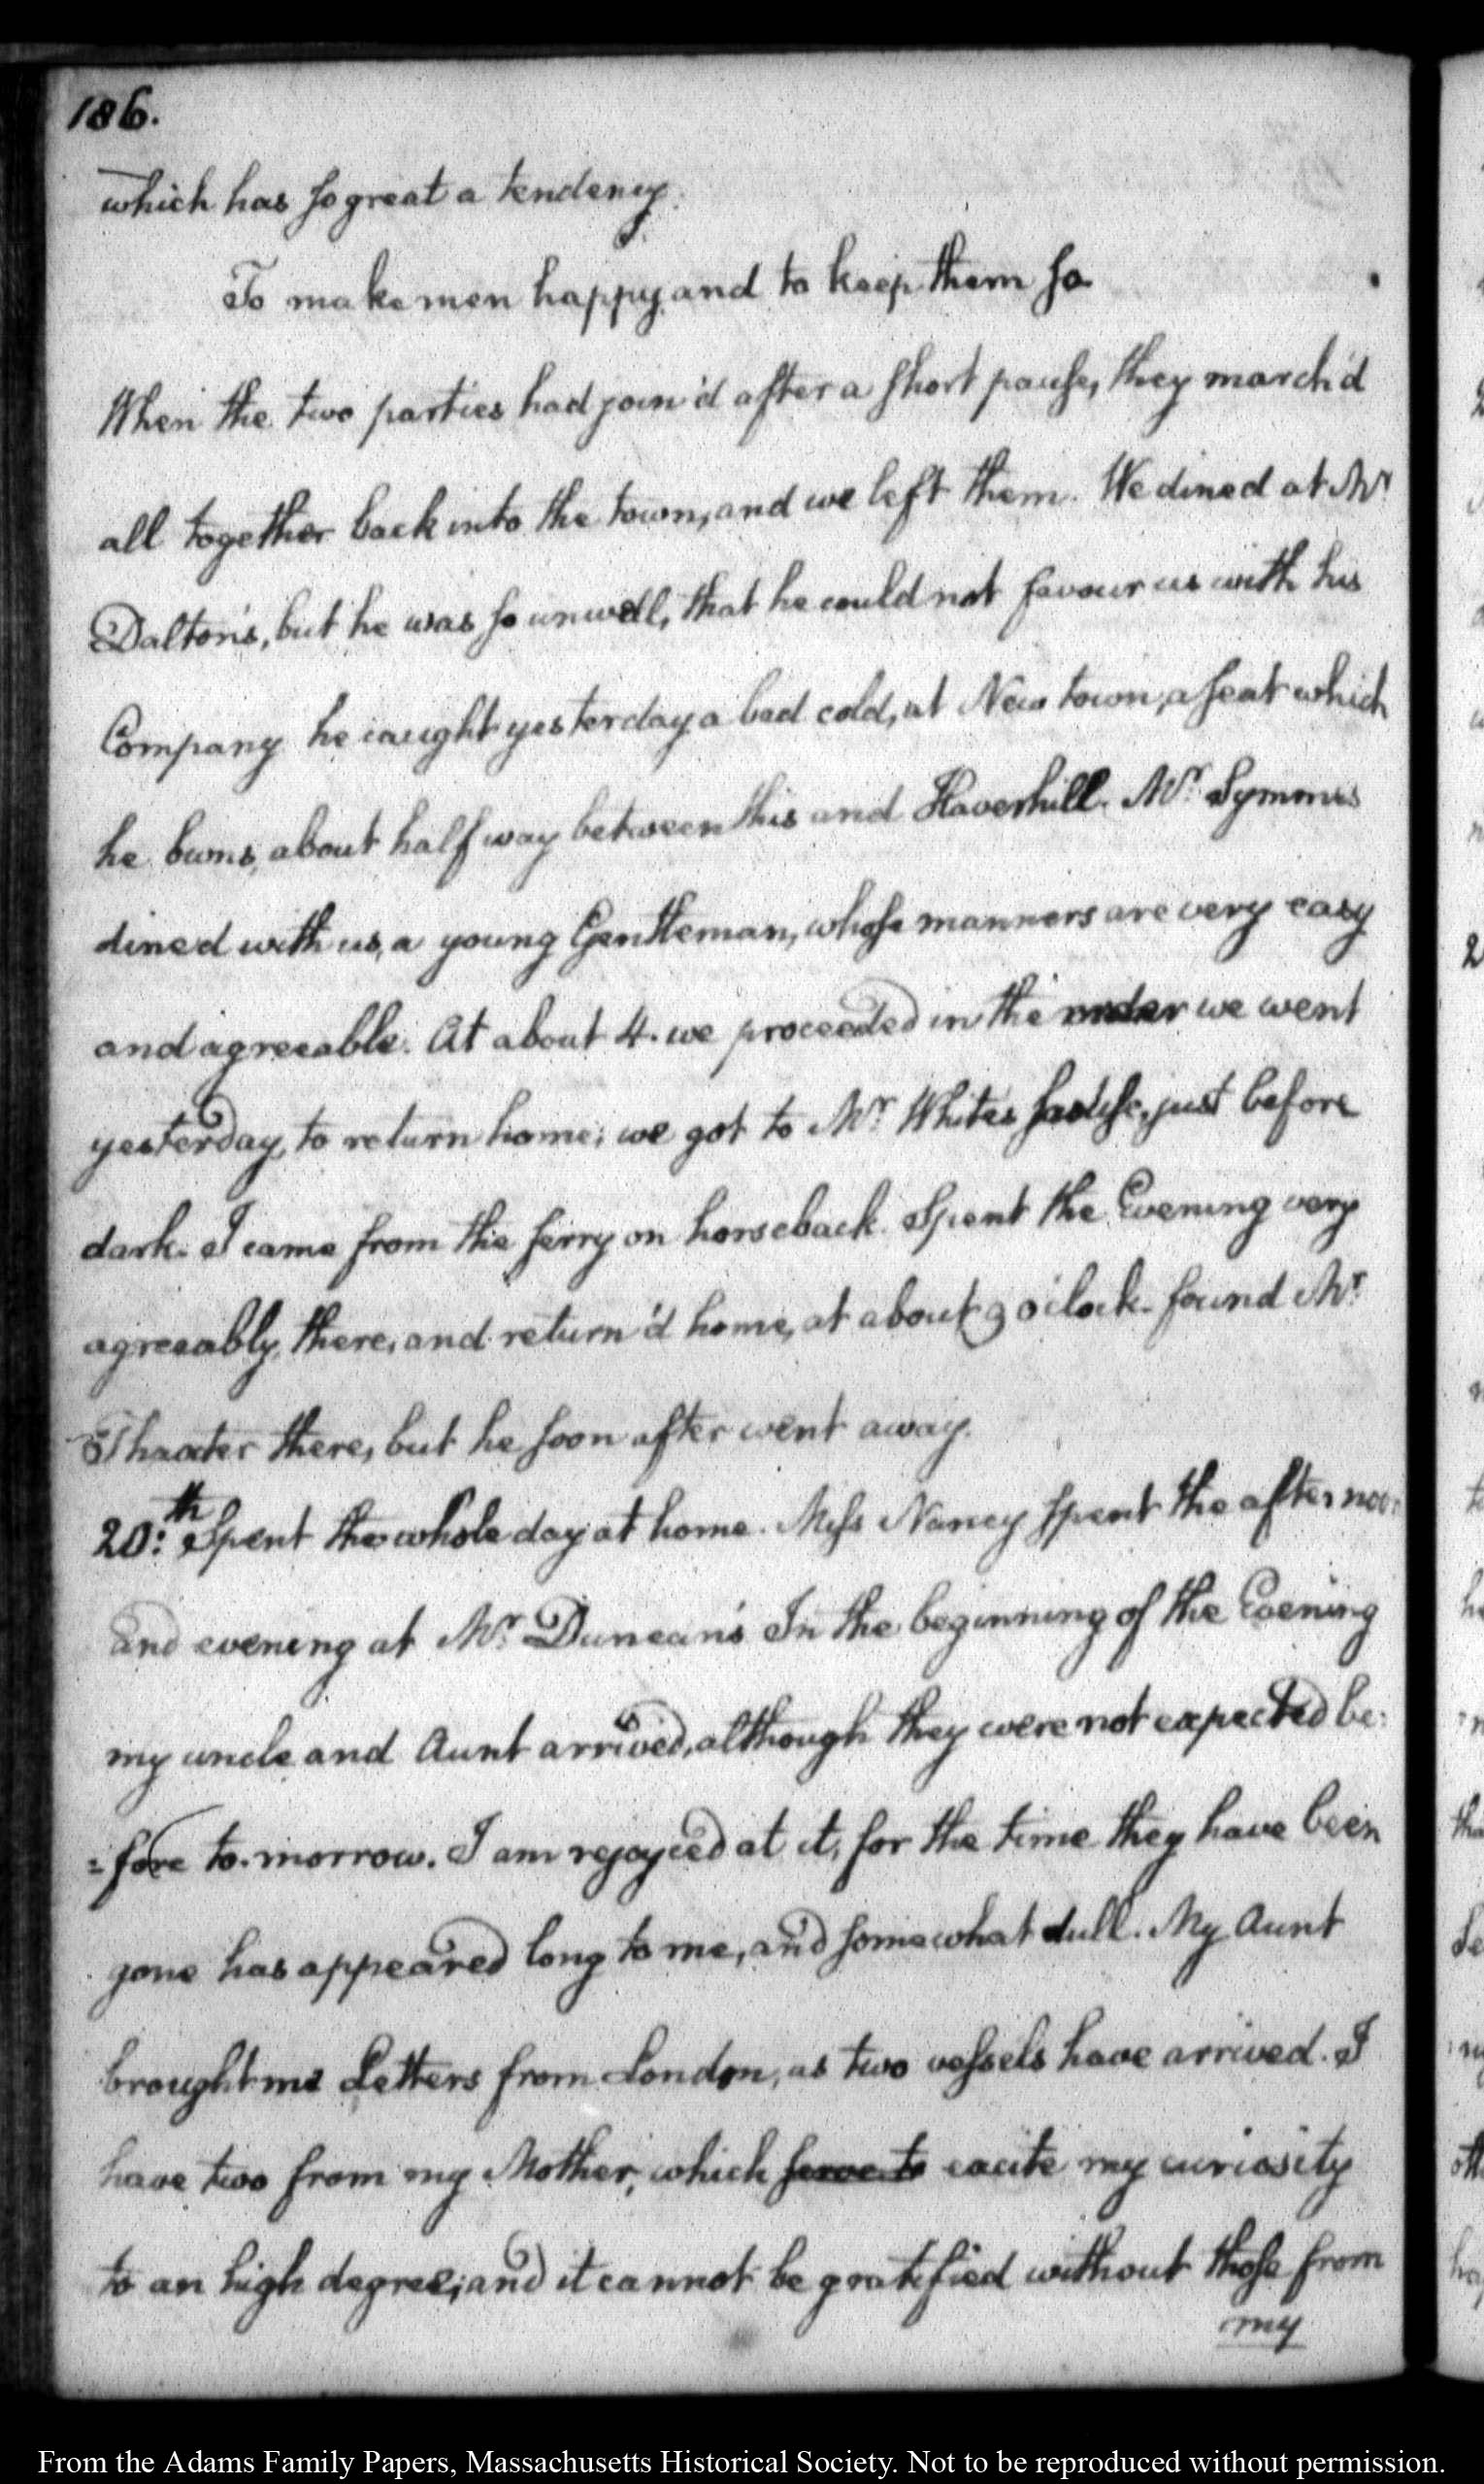 186.
which has so great a tendency.
To make men happy, and to keep them so
When the two parties had join'd after a short pause, they march'd
all together back into the town, and we left them. We dined at Mr.
Dalton's, but he was so unwell, that he could not favour us with his
Company he caught yesterday a bad cold, at New town, a seat which
he owns, about half way between this and Haverhill. Mr. Symmes
dined with us, a young Gentleman, whose manners are very easy
and agreeable. At about 4. we proceeded in the order we went
yesterday, to return home; we got to Mr. Whites house, just before
dark. I came from the ferry on horseback. Spent the Evening very
agreeably, there, and return'd home, at about 9 o'clock. found Mr.
Thaxter there, but he soon after went away.
20:th Spent the whole day at home. Miss Nancy spent the afternoon
and evening at Mr. Duncan's In the beginning of the Evening
my uncle and Aunt arrived, although they were not expected be:
=fore to-morrow. I am rejoyced at it, for the time they have been
gone has appeared long to me, and somewhat dull. My Aunt
brought me Letters from London, as two vessels have arrived. I
have two from my Mother, which serve to excite my curiosity
to an high degree; and it cannot be gratified without those from
my
From the Adams Family Papers, Massachusetts Historical Society. Not to be reproduced without permission.